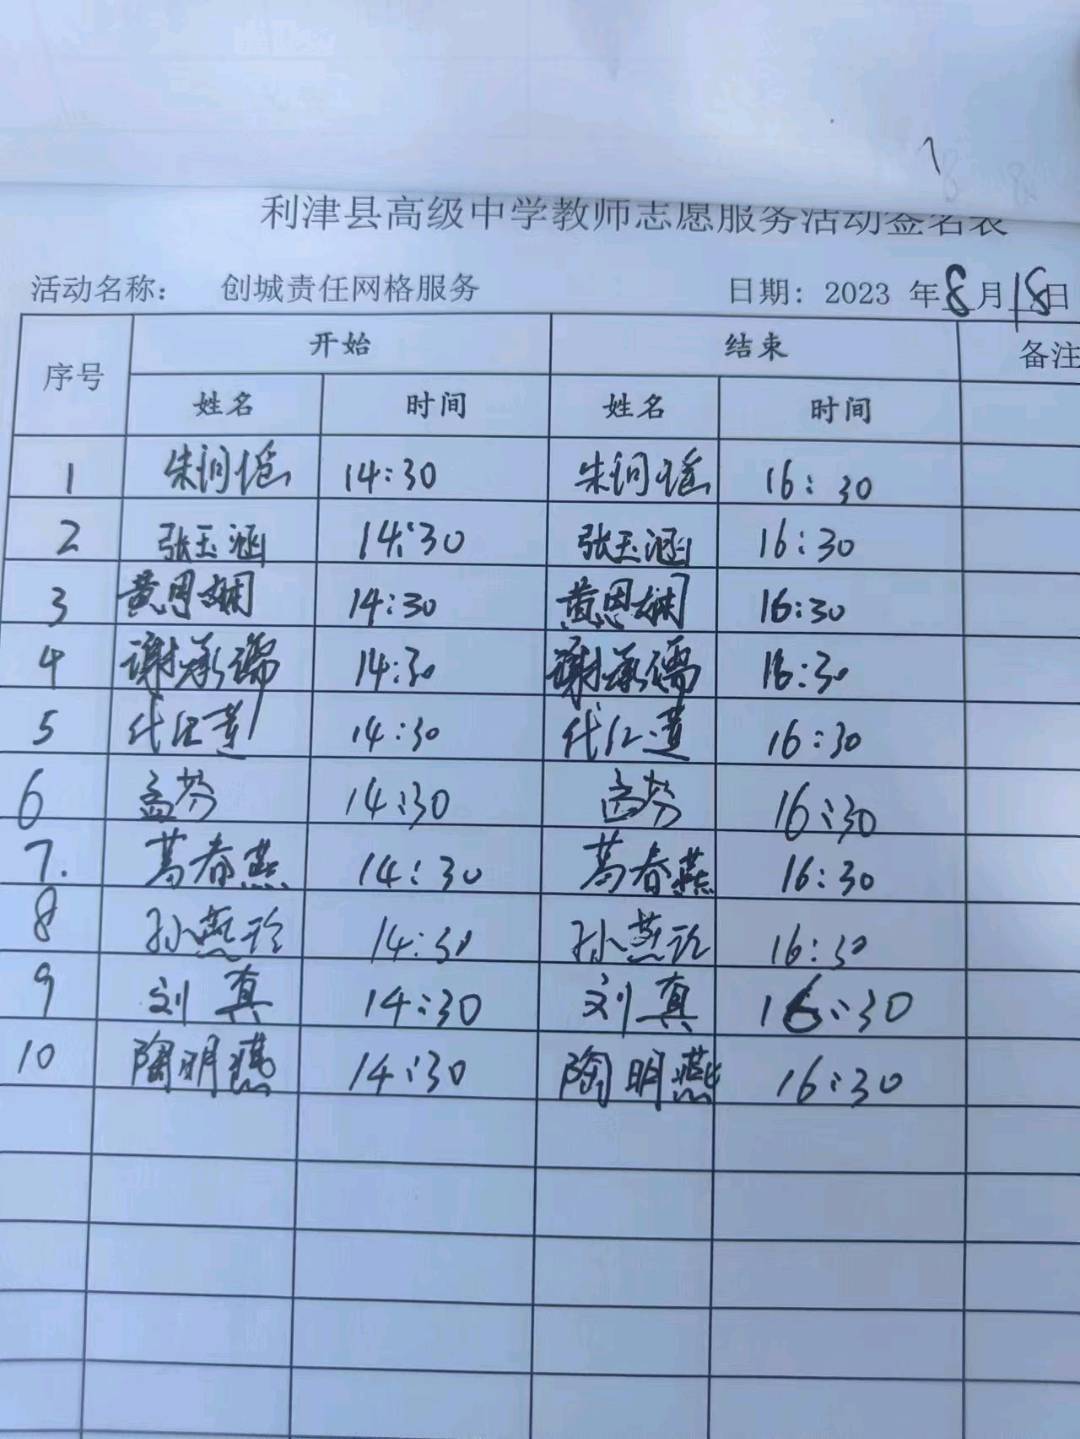 利津县高级中学教师志愿服务活动签名表
活动名称： 创城责任网格服务 日期：2023 年8月18日
序号 开始 结束 备注
姓名 时间 姓名 时间
1 朱润瑶 14:30 朱润瑶 16:30
2 张玉涵 14:30 张玉涵 16:30
3 黄恩娴 14:30 黄恩娴 16:30
4 谢承儒 14:30 谢承儒 16:30
5 代红莲 14:30 代红莲 16:30
6 孟芬 14:30 孟芬 16:30
7. 葛春燕 14:30 葛春燕 16:30
8 孙燕 14:30 孙燕 16:30
9 刘真 14:30 刘真 16:30
10 陶明燕 14:30 陶明燕 16:30